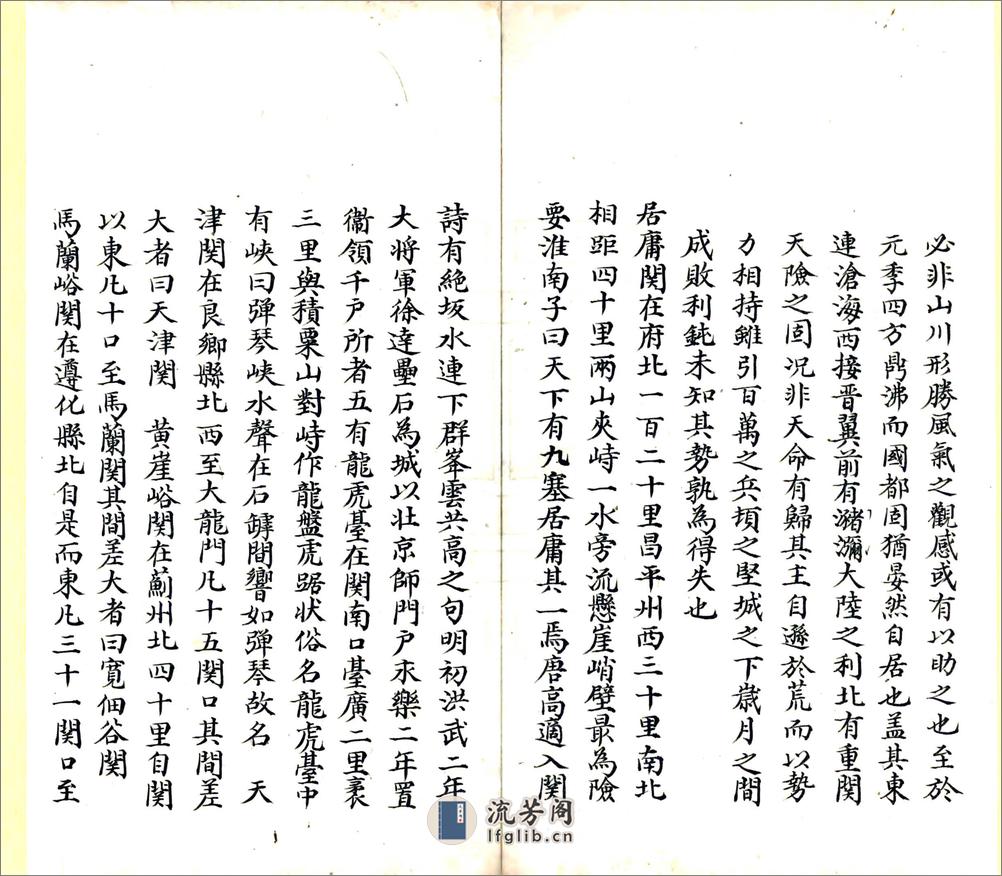 必非山川形勝風氣之觀感或有以助之也至於
元季四方鼎沸而國都固猶晏然自居也盖其東
連滄海西接晉翼前有瀦瀰大陸之利北有重関
天險之固况非天命有歸其主自遜於荒而以勢
力相持雖引百萬之兵頓之堅城之下歲月之間
成敗利鈍未知其勢孰為得失也
居庸関在府北一百二十里昌平州西三十里南北
相距四十里兩山夾峙一水旁流懸崖峭壁最為險
要淮南子曰天下有九塞居庸其一焉唐高適入関
詩有絶坂水連下群峯雲共高之句明初洪武二年
大將軍徐達壘石為城以壮京師門戶永樂二年置
衞領千戶所者五有龍虎臺在関南口臺廣二里袤
三里與積粟山對峙作龍盤虎踞状俗名龍虎臺中
有峽曰弹琴峽水聲在石罅間響如弹琴故名 天
津関在良鄉縣北西至大龍門凡十五関口其間差
大者曰天津関 黄崖峪関在薊州北四十里自関
以東凡十口至馬蘭関其間差大者曰寛佃谷関
馬蘭峪関在遵化縣北自是而東凡三十一関口至
流芳阁
lfglib.cn